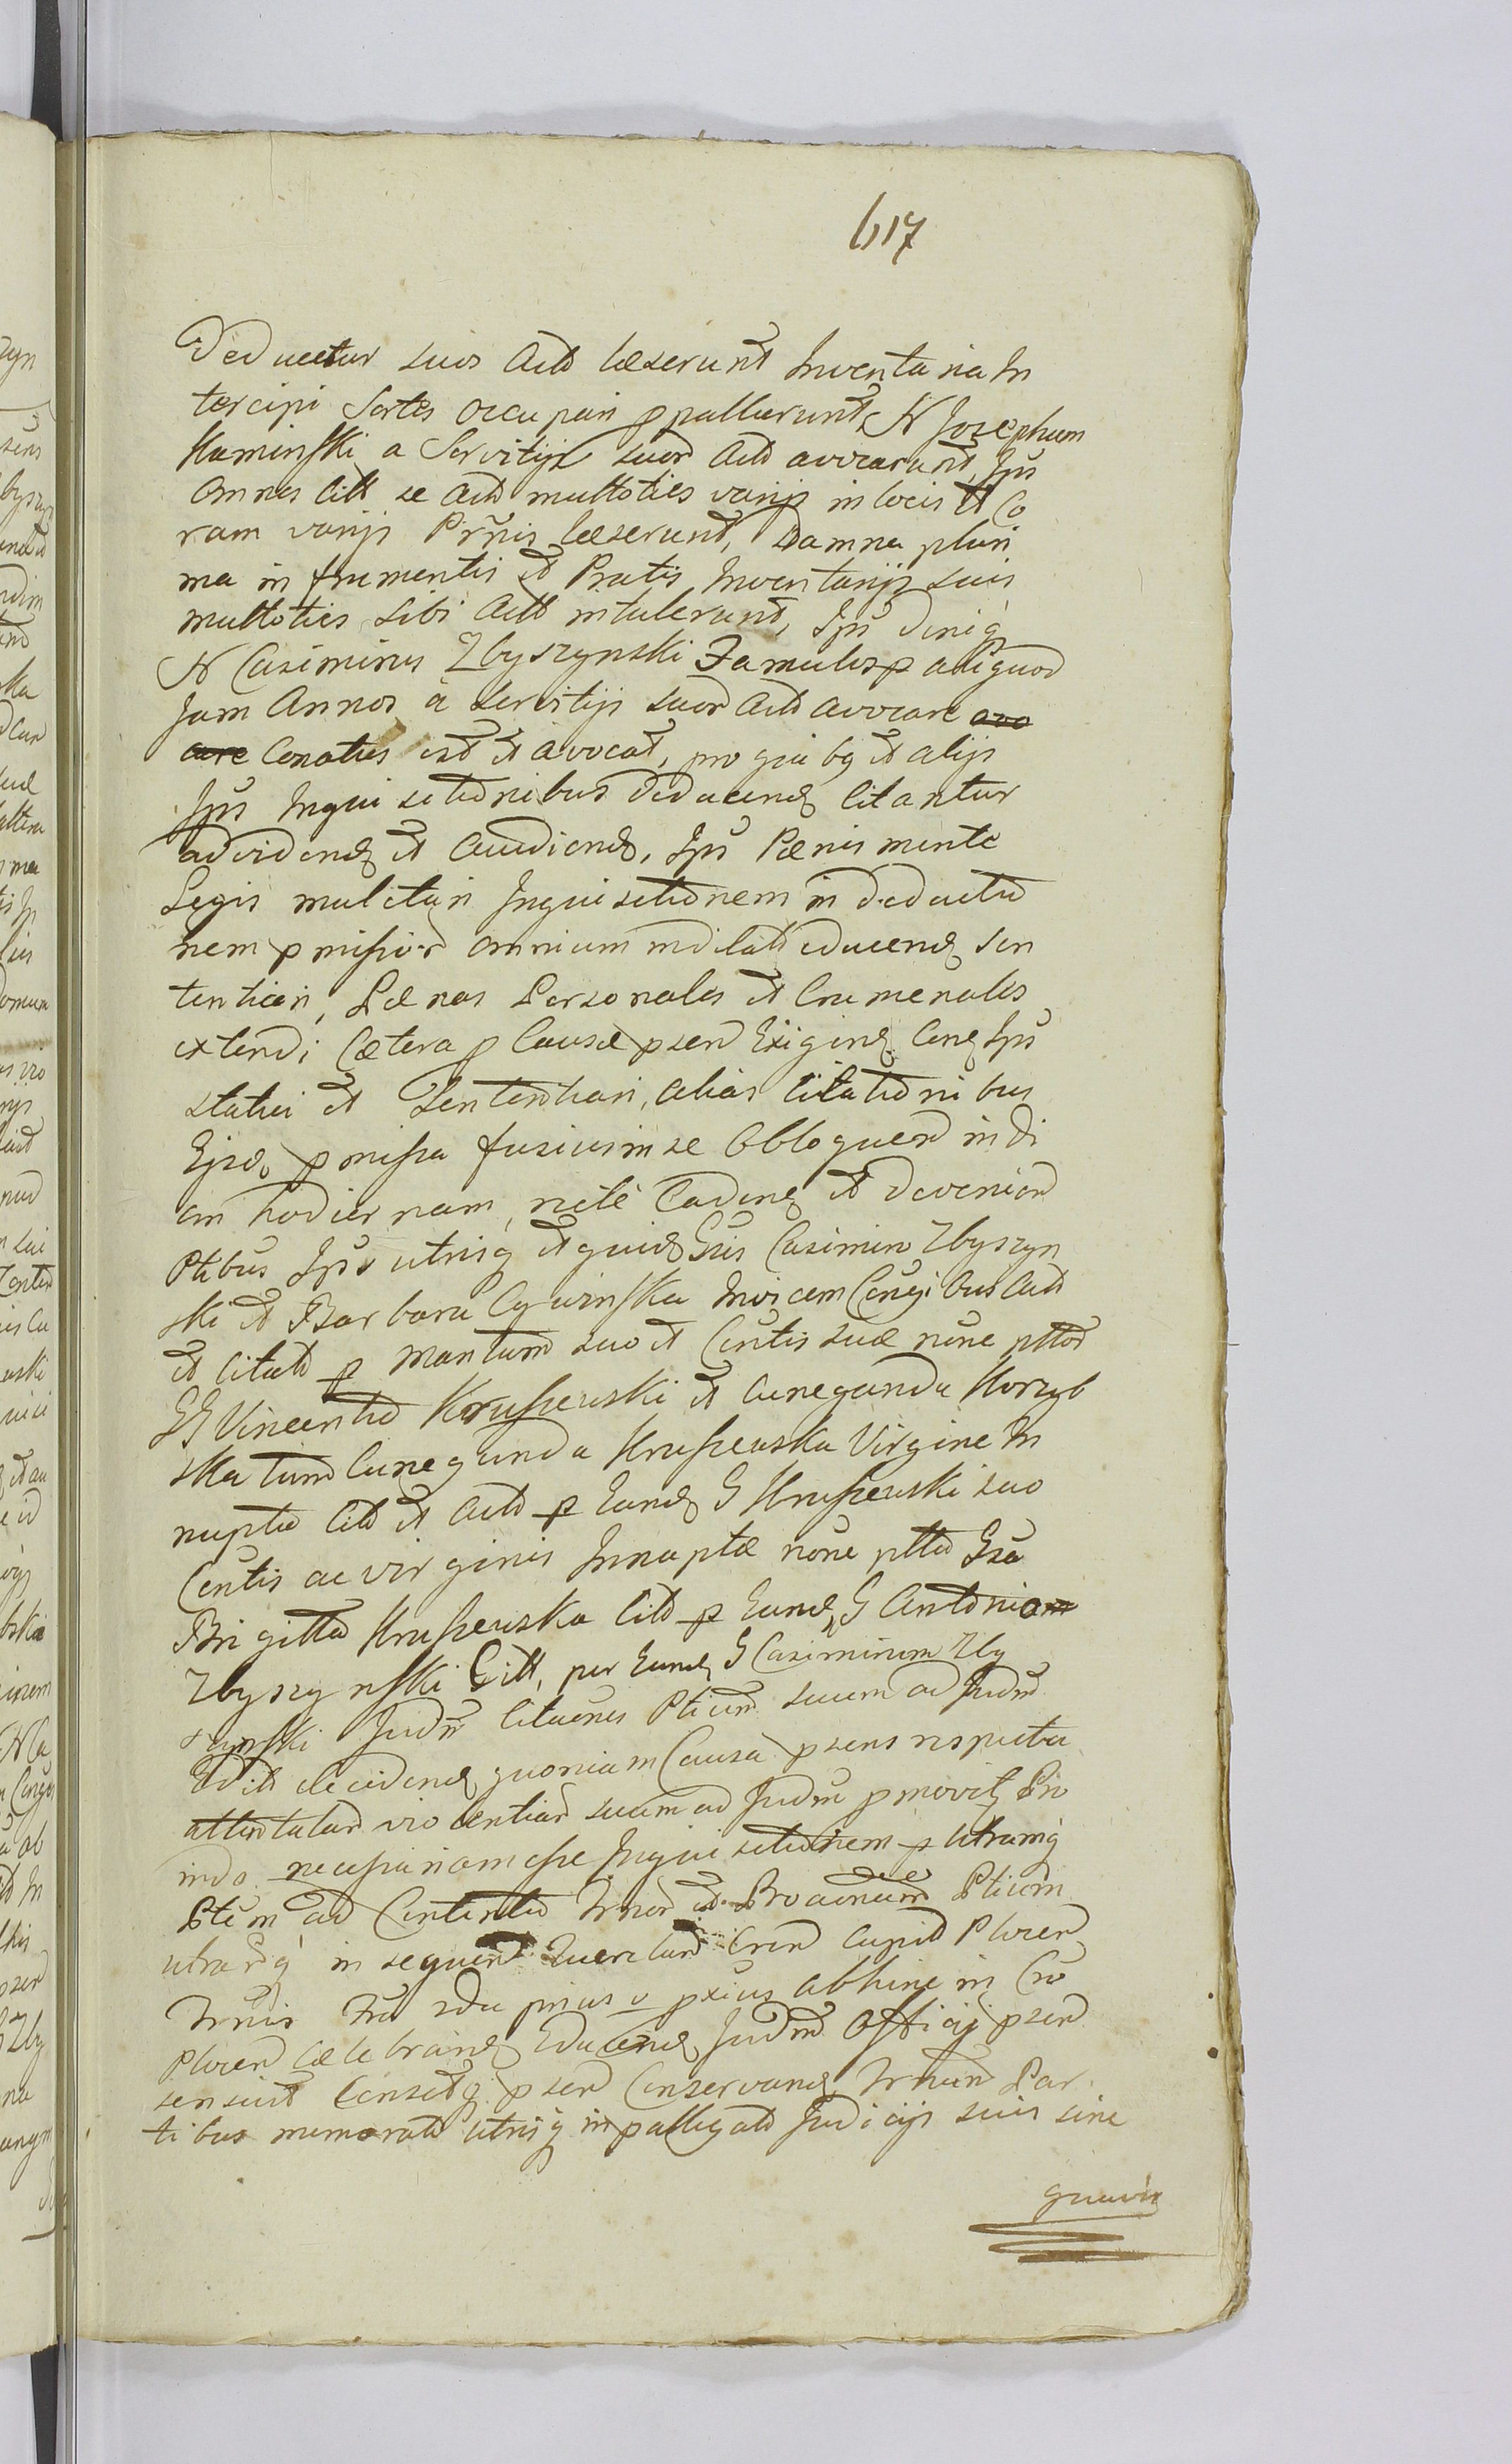 617
Deducetur suos Actt læserunt Inventaria In
tercipi Sortes occupari ppallarunt, N Josephum
Kaminski a Servitijs suor Actt avocarunt, Ips
Omnes Citt se Actt multoties varijs in locis et Co
ram varijs Prnis læserunt, Damna pluri
ma in frumentis et Pratis Inventarijs suis
multoties sibi Actt intulerunt, Ips deniq
N Casimirus Zbyszynski Famulos p aliquod
Jam Annos à servitijs suor Actt avocare avo
care Conatus est et avocat, pro quibq et alijs
Ips Inquisitionibus deducend Citantur
ad vidend et Audiend, Ips Pænis mente
Legis mulctari Inquisitionem in deductio
nem pmissor omnium indilatt educend sen
tentiari, Pænas Personales et Crumenales
extendi Cætera p Causæ psen Exigen Cen Ips
statui et Sententiari, alias Citationibus
Ejsd pmissa fusius in se Obloquen in di
em hodiernam, ritè Caden et devenien
Ptibus Ips utrisq et quid Gsis Casimiro Zbyszyn
ski et Barbara Cywinska Invicem Conjgibus Actt
et Citatt p Maritum suo et Csortis suæ noie ptto
GG Vincentio Krussewski et Cunegunda Korzyb
ska tum Cunegunda Krussewska Virgine In
nupta Citt et Actt p Eund G Krussewski suo
Csortis ac virginis Innuptæ noie ptta Gsa
Brigitta Krussewska Citt p Eund G Antonio
Zbyszynski Citt, per Eund G Casimirum Zby
szynski Judm Citaones Ptium suum ad Judm
Editt decidend quoniam Causa psens respectu
attentatar violentiar suum ad Judm pmovit Pro
indo necessariam esse Inquisitionem p Utramq
Ptem ad Contenta Trnor et Proaonum Ptium
utrarq in sequen Querelar Cren Cupit Plocen
Trnis Tra sda prius v pxius abhinc in Cro
Plocen Cælebrand Educend Judm Officij psen
sensuit Censetq psen Conservand Trnum Par
tibus memoratt utrisq in palligatt Judicijs suis sine
gravis